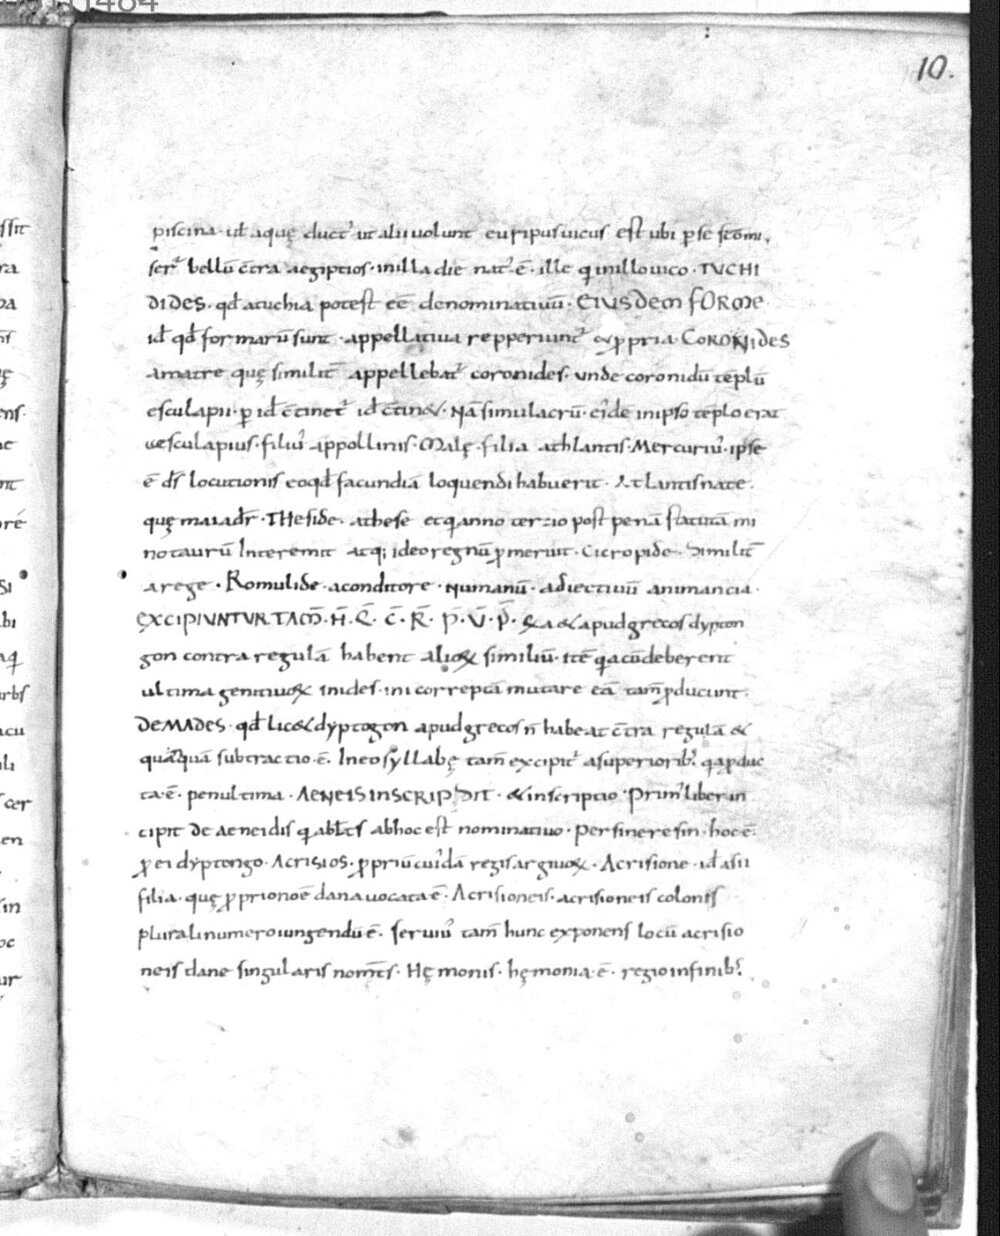 10.
piscina· uł aquę duct᾽ ut alii uolunt euripus uicus est ubi p̱ se scōmi,
ser᾽ bellū c̄tra aegiptios· in illa die nat᾽ ē· ille q in illo uico· TUCHI
DIDES· qđ a tuchia potest eē denominatiuū· EIUSDEM FORME
id qđ formarū sunt· appellatiua repperiunt᾽ & ꝓpria· CORONIDES
a matre quę similit̄ appellebat᾽ coronides· unde coronidū tēplū
esculapii· ꝑ id c̄tinet᾽ id c̄tin&· Nā simulacrū· ei᾽dē in ipso tēplo erat
aesculapius· filiu᾽ appollinis· Maię· filia athlantis· Mercuriu᾽· ipse
ē d̄s locutionis eo qđ facundiā loquendi habuerit· Atlantis nate·
quę maia dr̄· THESIDE· a these et q anno tertio post penā statutā mi
notaurū Interemit atq; ideo regnū ꝓmeruit· Cicropide· Similit̄
a rege· Romulide· a conditore· Numanū· adiectiuū animancia·
EXCIPIUNTUR TAM̄· H̄· Q̄· C̄· R̄· P̄· Ū· P̄· ęa & apud grecos dypton
gon contra regulā habent alioꝝ similiū· itē q a cū deberent
ultima genitiuoꝝ in des· in i correptā mutare eā tam̄ ꝓducunt·
DEMADES· qđ lic& dyptogon apud grecos n̄ habeat c̄tra regulā &
quāquā subtractio ē· In eo syllabę tam̄ excipit᾽ a superiorib᾽· q a ꝓduc
ta ē· penultima· AENEIS INSCRIPSIT· & inscriptio· Prim᾽ liber in
cipit de aeneidis q abłt̄s ab hoc est nominatiuo· Per sineresin· hoc ē·
ꝓ ei dyptongo· ACRISIOS· ꝓpriū cui᾽dā regis argiuoꝝ· Acrisione· id asii
filia· quę ꝓprio noē dana uocata ē· Acrisioneis· acrisioneis colonis
plurali numero iungendū ē· seruiu᾽ tam̄ hunc exponens locū acrisio
neis dane singularis nom̄t̄s· Hęmonis· hęmonia ē· regio in finib᾽·